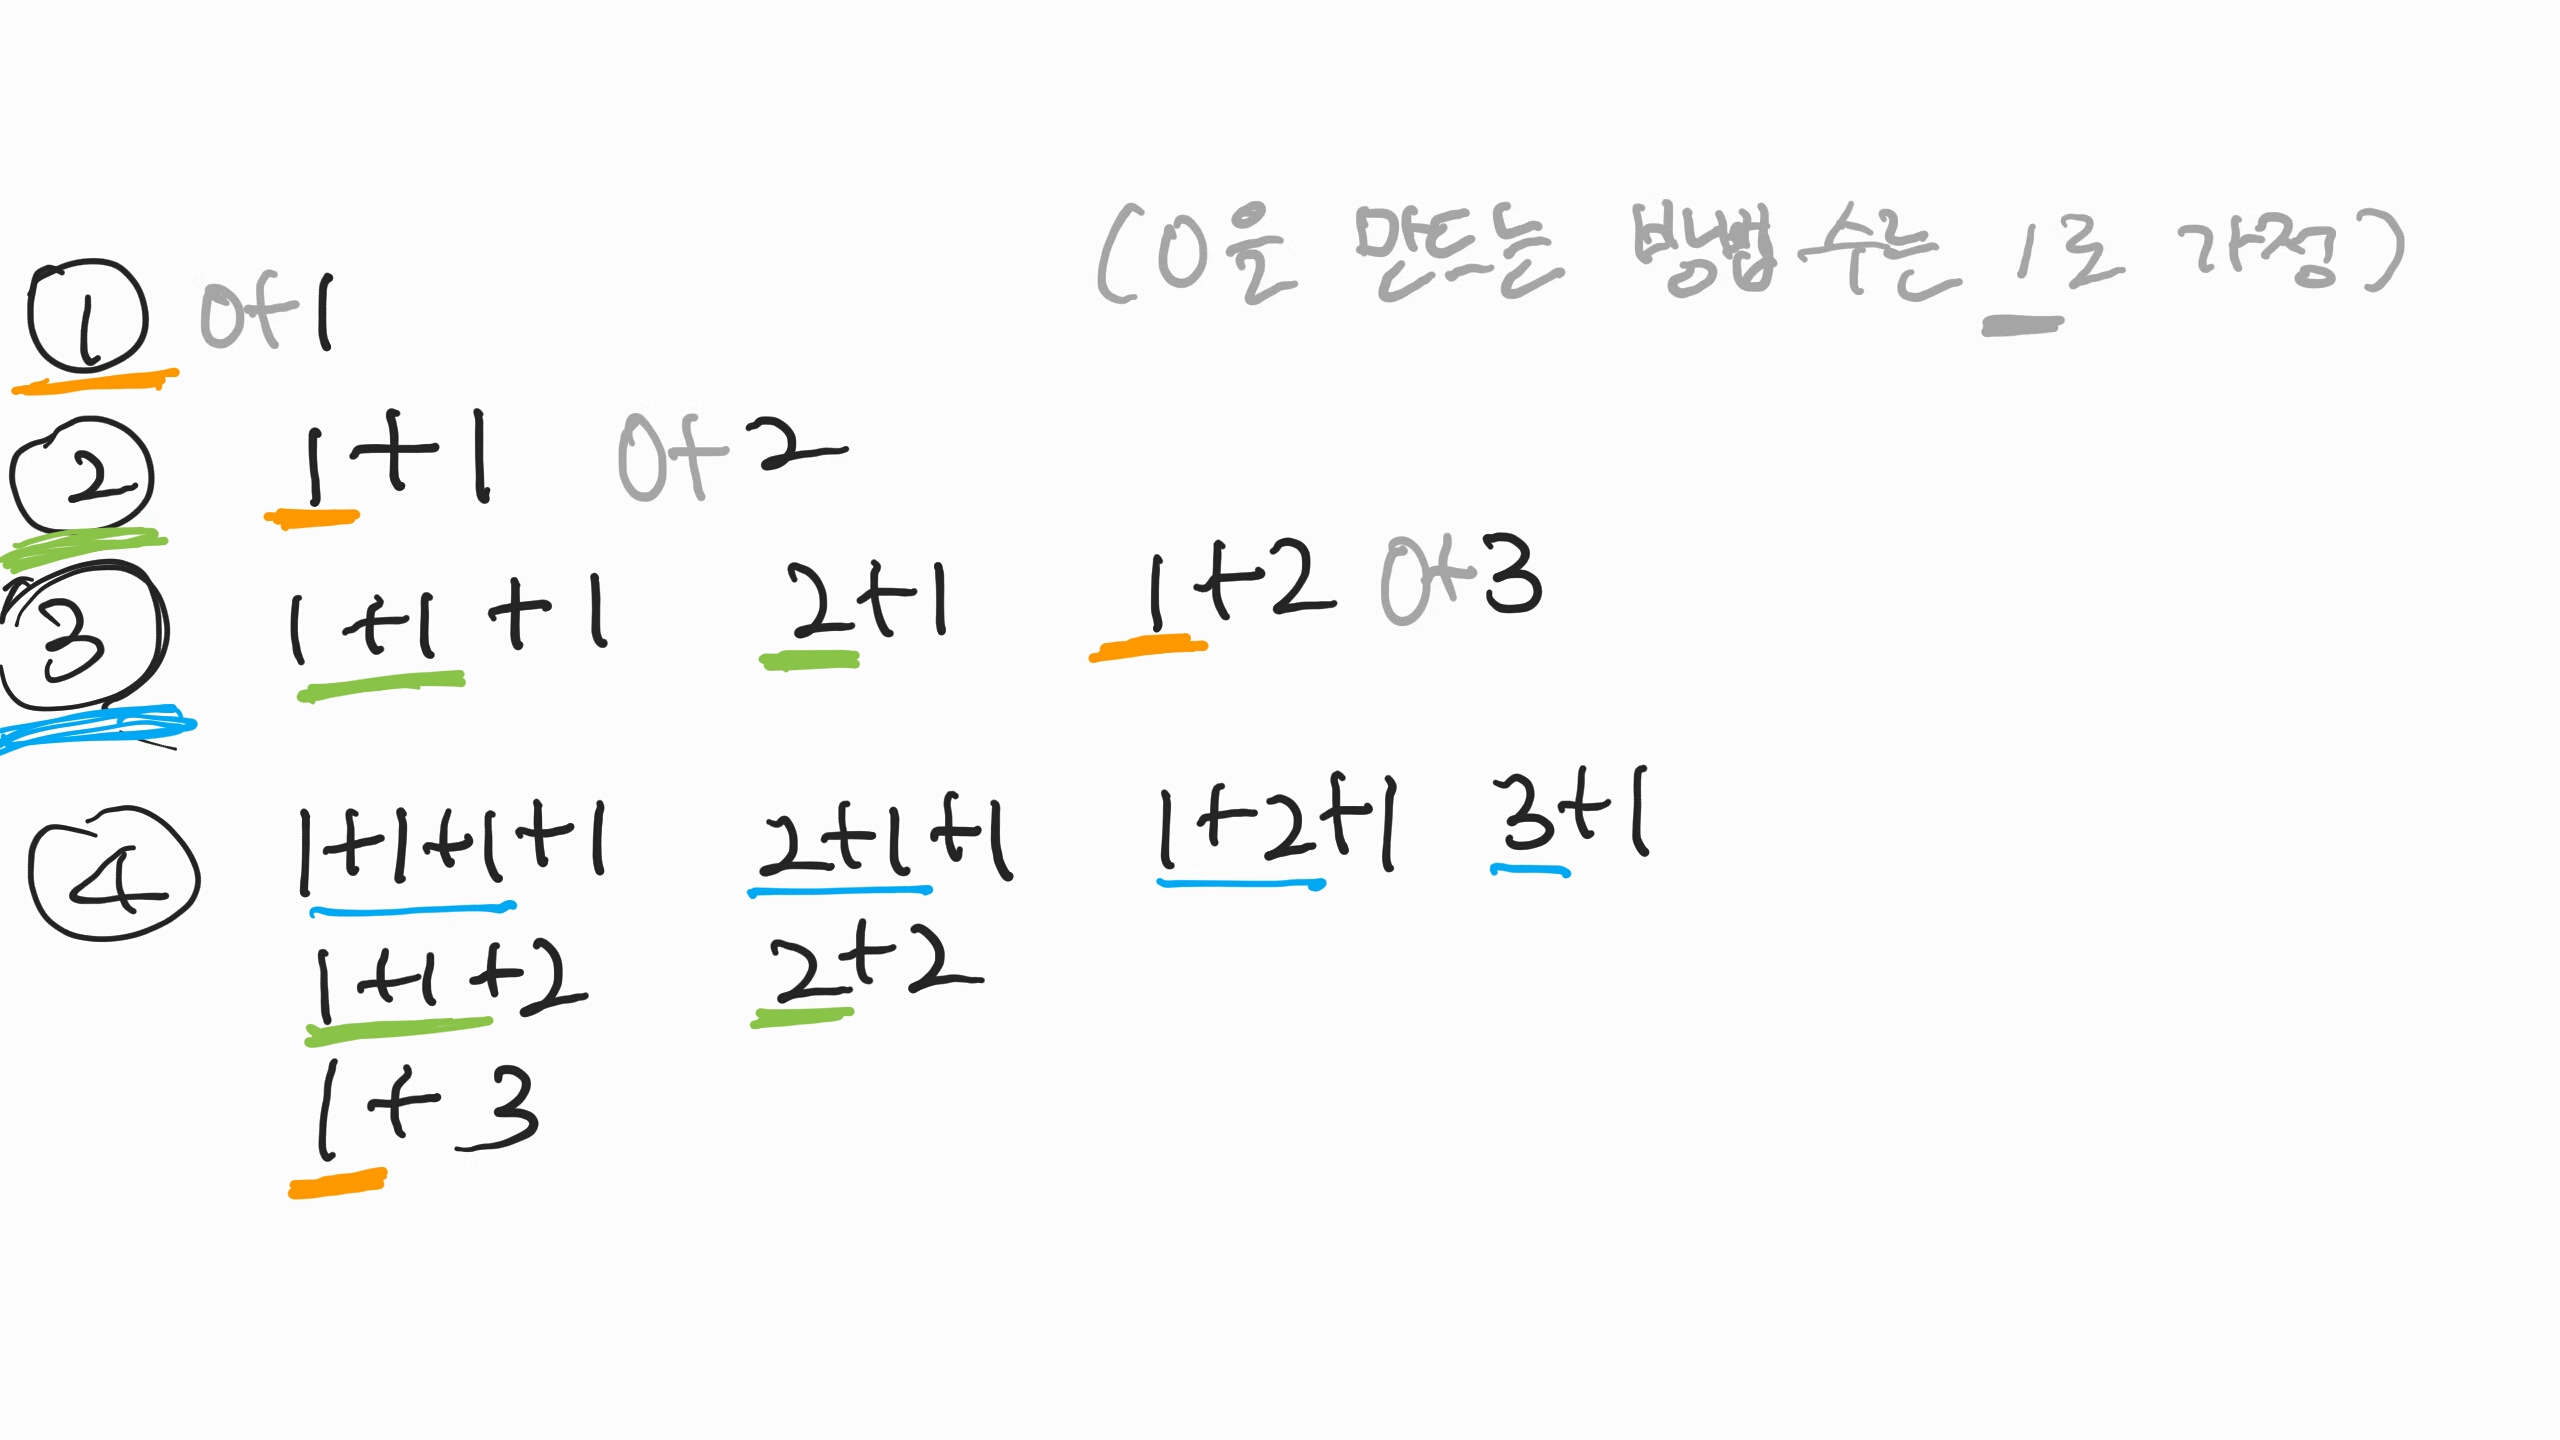 (0을 만드는 방법 수는 1로 가정)
① 0+1
② 1+1 0+2
③ 1+1+1 2+1 1+2 0+3
④ 1+1+1+1 2+1+1 1+2+1 3+1
1+1+2 2+2
1+3